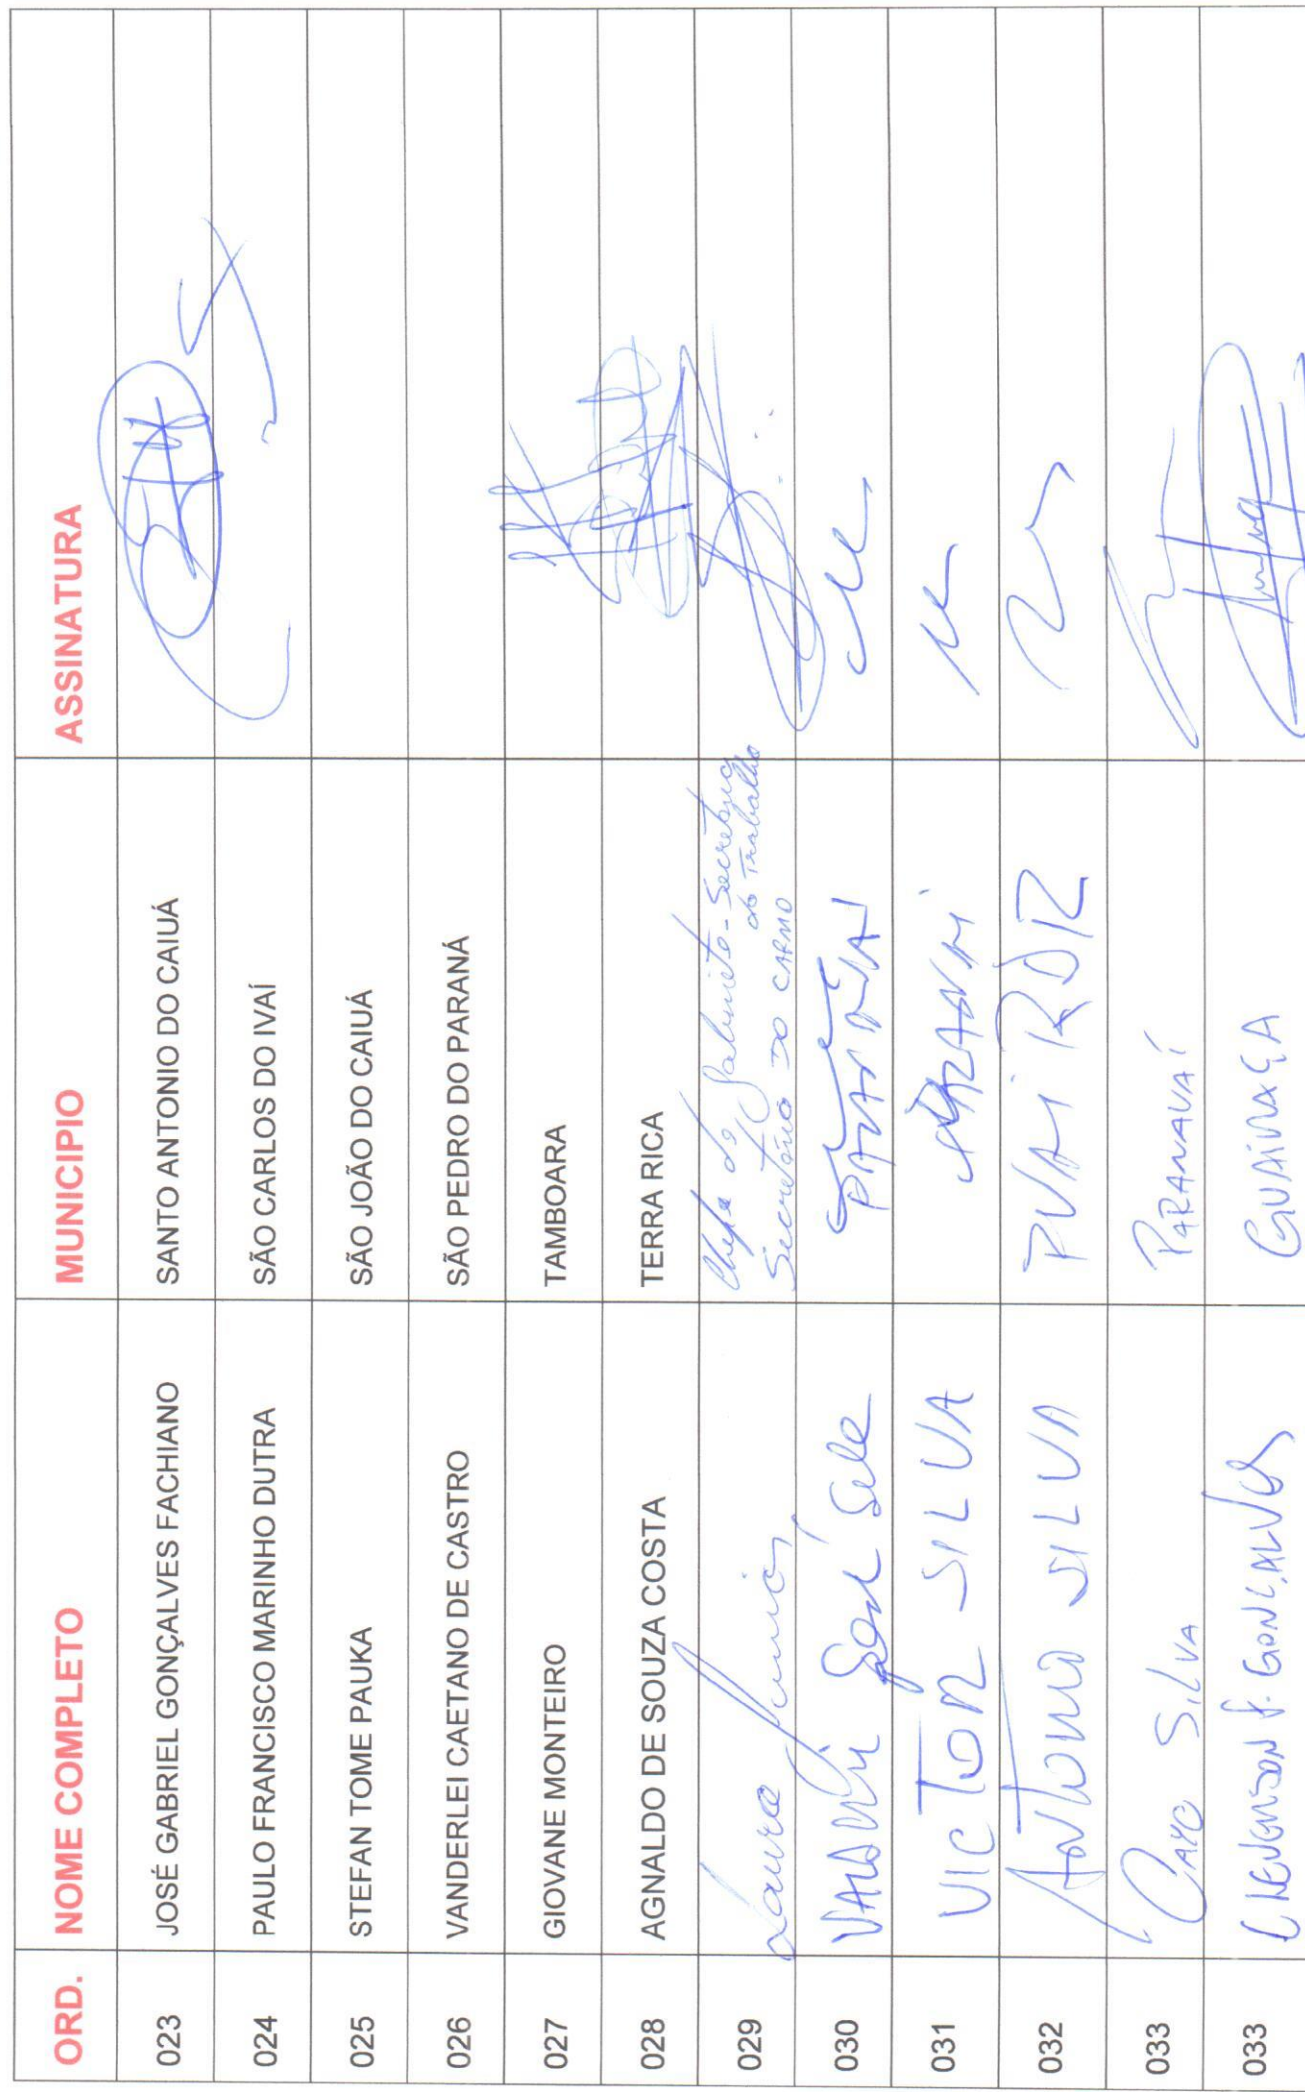 ORD. NOME COMPLETO MUNICIPIO ASSINATURA
023 JOSÉ GABRIEL GONÇALVES FACHIANO SANTO ANTONIO DO CAIUÁ
024 PAULO FRANCISCO MARINHO DUTRA SÃO CARLOS DO IVAÍ
025 STEFAN TOME PAUKA SÃO JOÃO DO CAIUÁ
026 VANDERLEI CAETANO DE CASTRO SÃO PEDRO DO PARANÁ
027 GIOVANE MONTEIRO TAMBOARA
028 AGNALDO DE SOUZA COSTA TERRA RICA
029 Laura Chefe de Gabinete - Secretaria
do Trabalho
Secretário DO CARMO
030
031 VICTOR SILVA
032 ANTONIO SILVA PVAI
033 SILVA PARANAVAÍ
033 GONÇALVES GUAIRAÇA